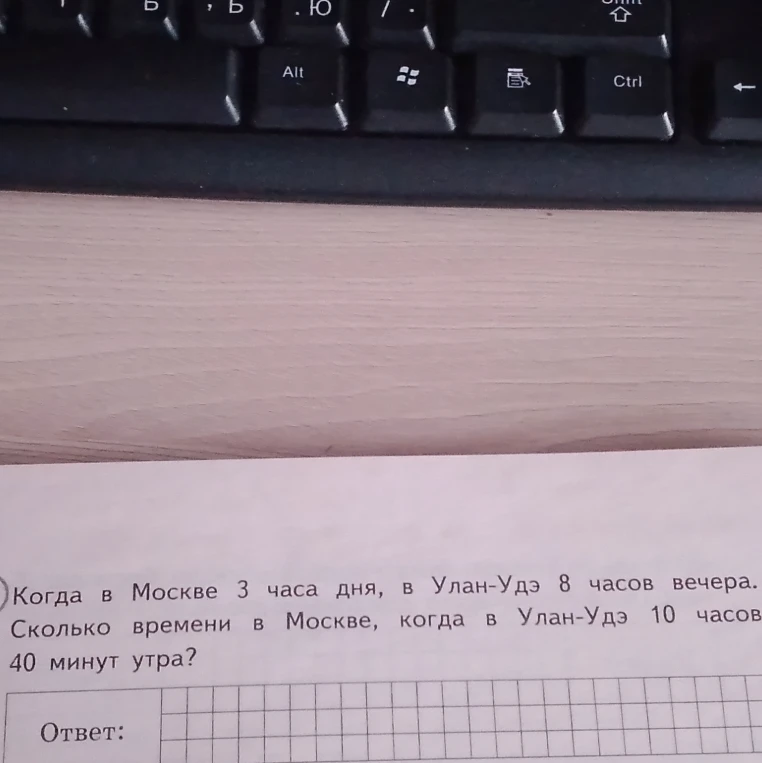 Б , Ь . Ю / .
Alt Ctrl
Когда в Москве 3 часа дня, в Улан-Удэ 8 часов вечера.
Сколько времени в Москве, когда в Улан-Удэ 10 часов
40 минут утра?
Ответ: